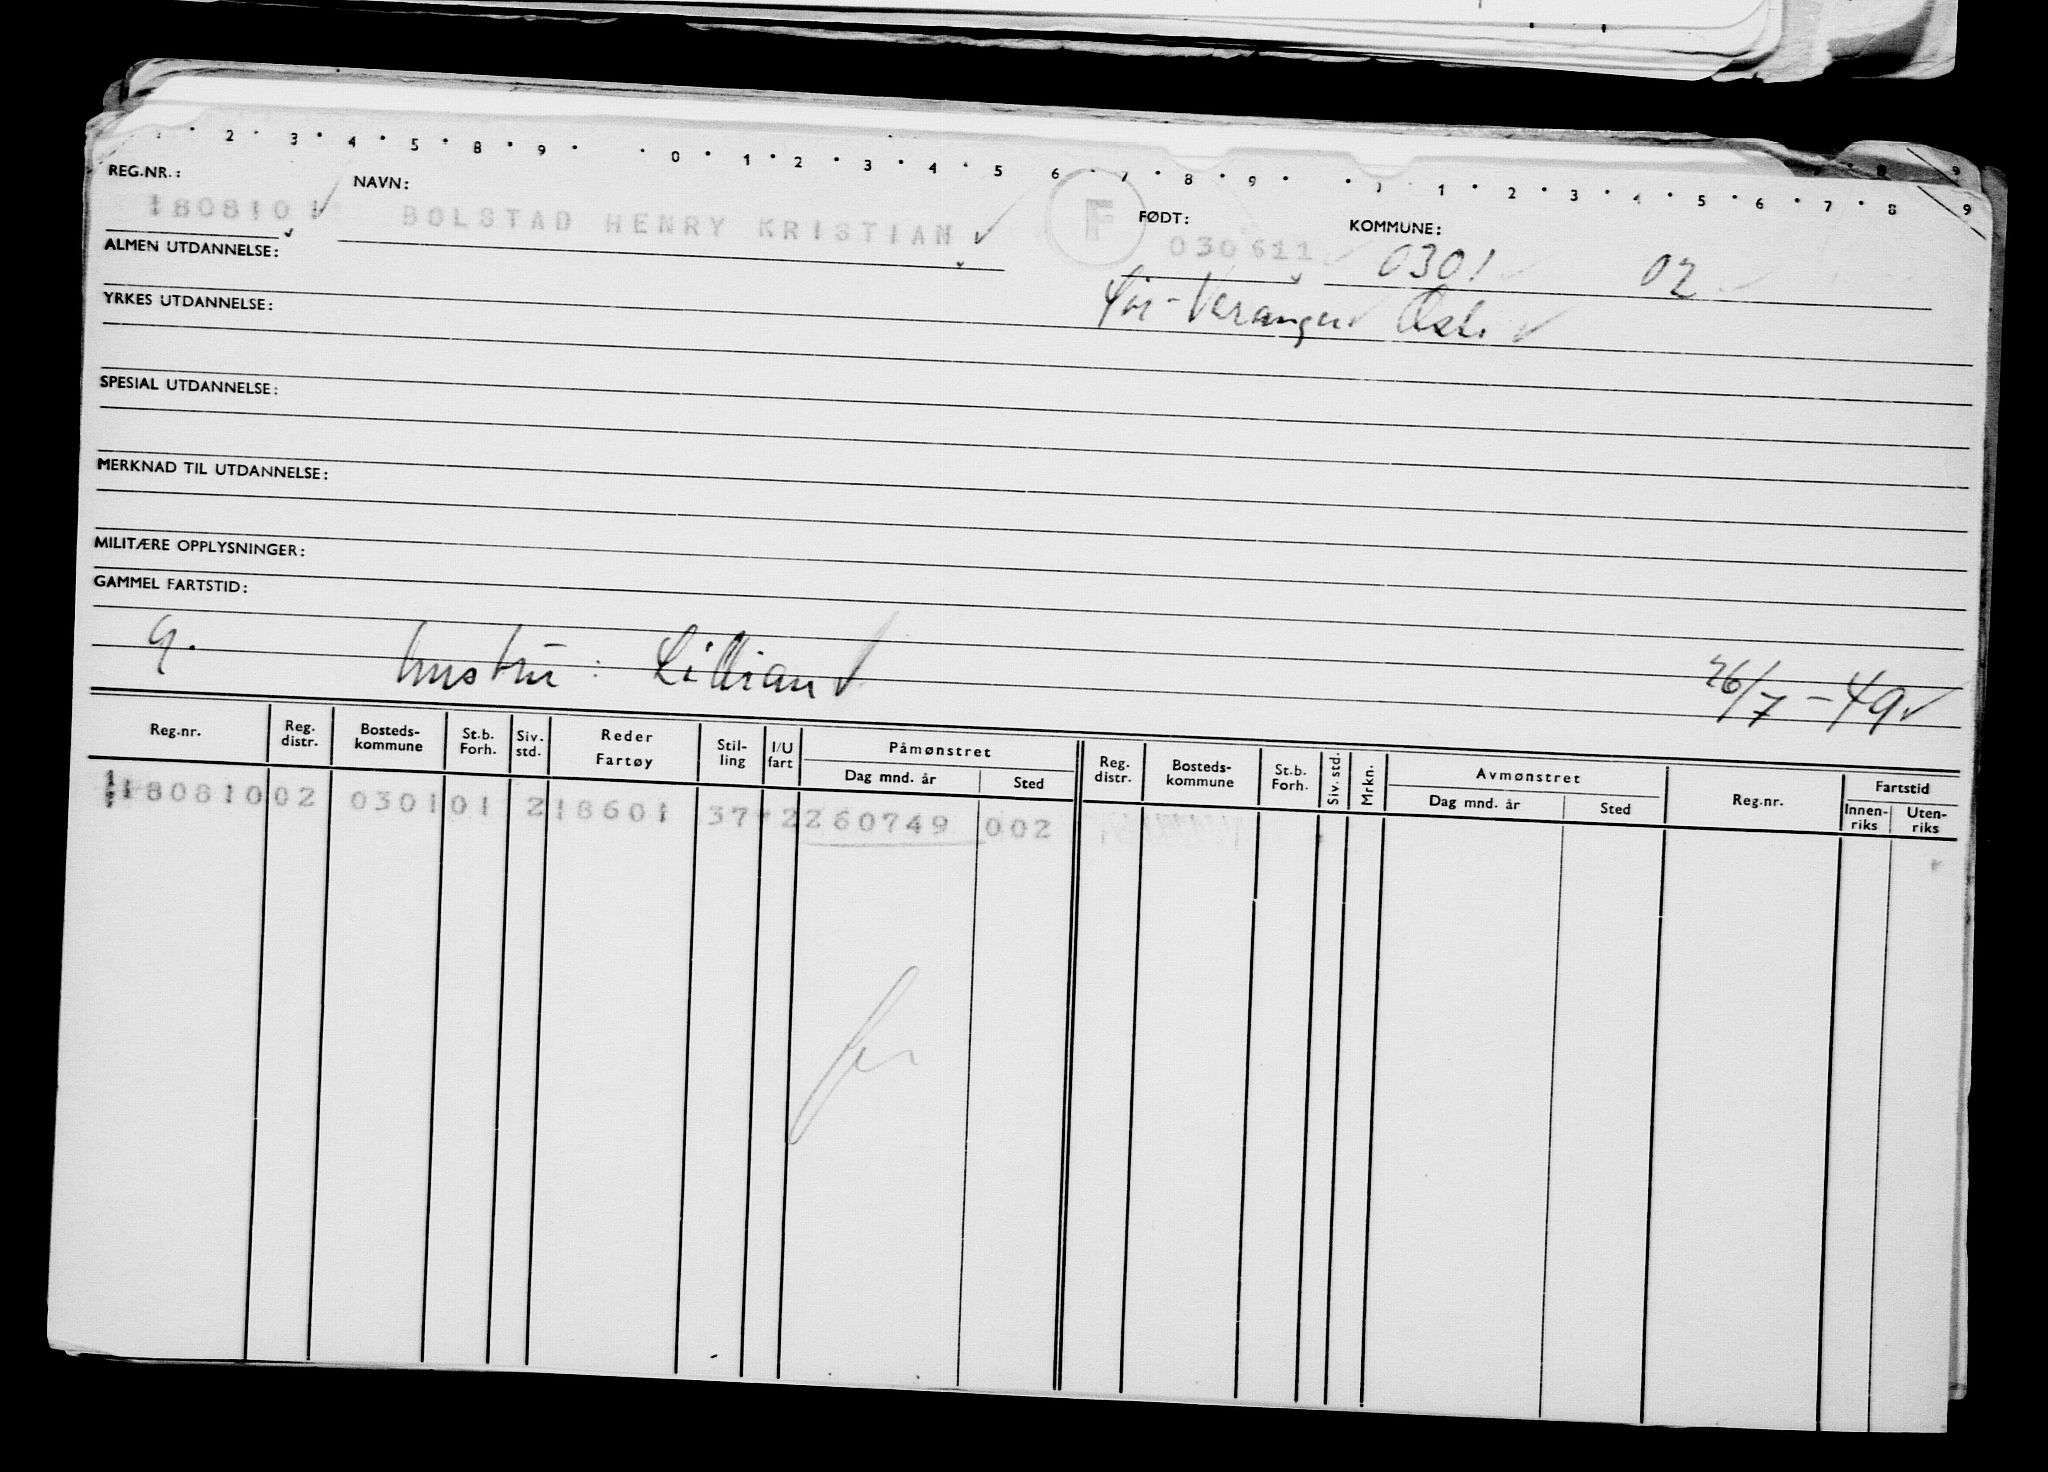 1 · 2 · 3 · 4 · 5 · 8 · 9 · · 0 · 1 · 2 · 3 · 4 · 5 6 · 7 · 8 · 9 · · 1 · 2 · 3 · 4 · 5 · 6 · 7 · 8 9
REG.NR.: NAVN: FØDT: KOMMUNE:
180810 BOLSTAD HENRY KRISTIAN F 030611 0301 02
ALMEN UTDANNELSE:
Sør-Varanger Oslo
YRKES UTDANNELSE:
SPESIAL UTDANNELSE:
MERKNAD TIL UTDANNELSE:
MILITÆRE OPPLYSNINGER:
GAMMEL FARTSTID:
g. hustru: Lillian 26/7-49
Reg.nr. Reg. distr. Bosteds- kommune St.b. Forh. Siv. std. Reder Fartøy Stil- ling I/U fart Påmønstret Dag mnd. år Sted Reg. distr. Bosteds- kommune St.b. Forh. Siv. std. Mrkn. Avmønstret Dag mnd. år Sted Reg.nr. Fartstid Innen- riks Uten- riks
180810 02 0301 01 2 18601 37 2 260749 002